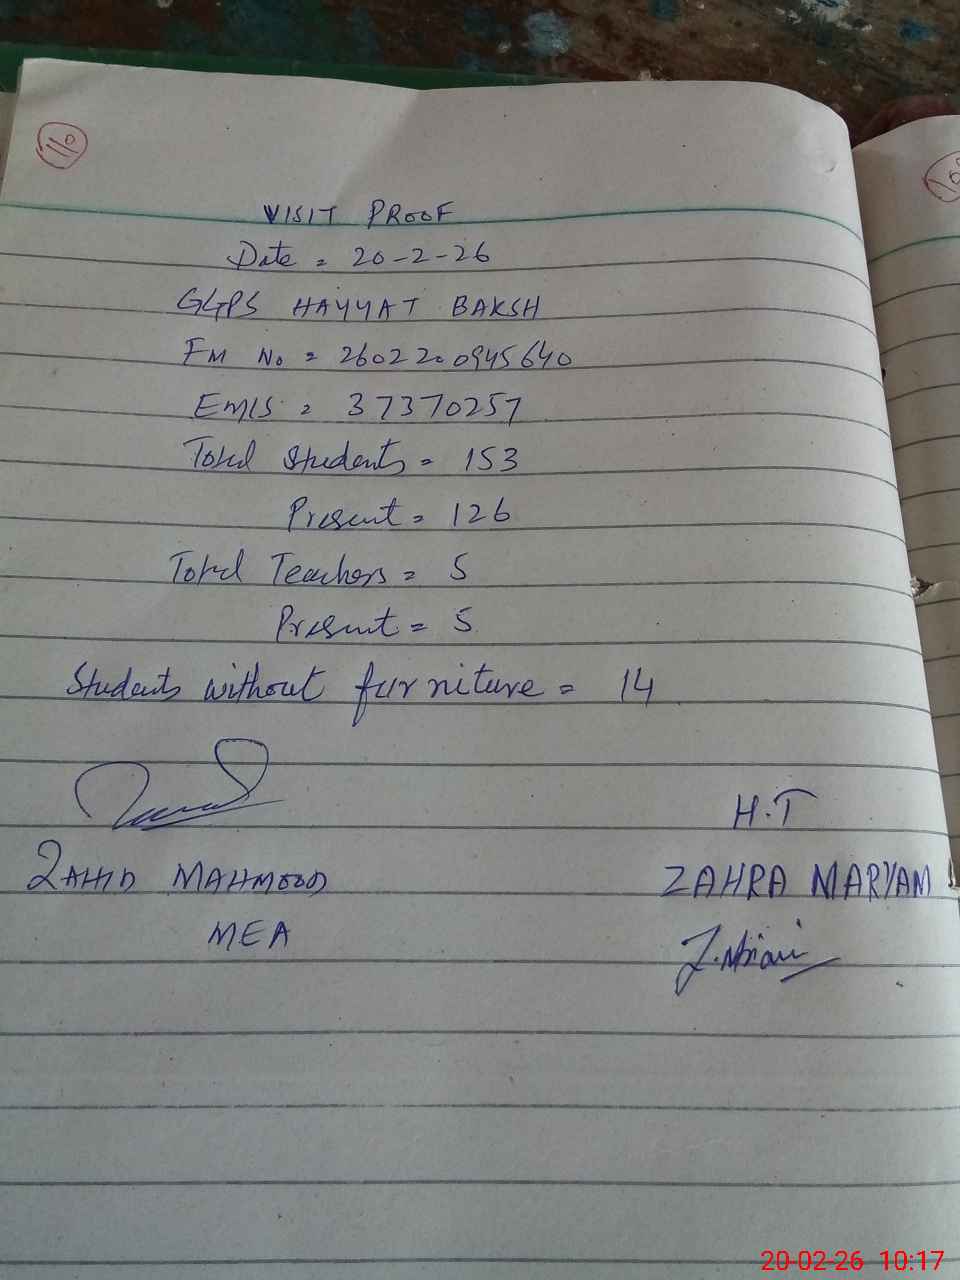 110
VISIT PROOF
Date = 20-2-26
GGPS HAYYAT BAKSH
FM No = 2602200945640
EMIS = 37370257
Total Students = 153
Present = 126
Total Teachers = 5
Present = 5
Students without furniture = 14
H.T
ZAHID MAHMOOD
ZAHRA MARYAM
MEA
20-02-26 10:17